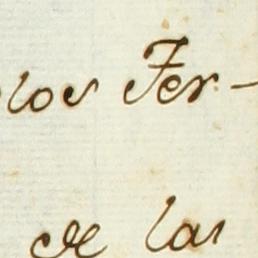 los Fer-
de las